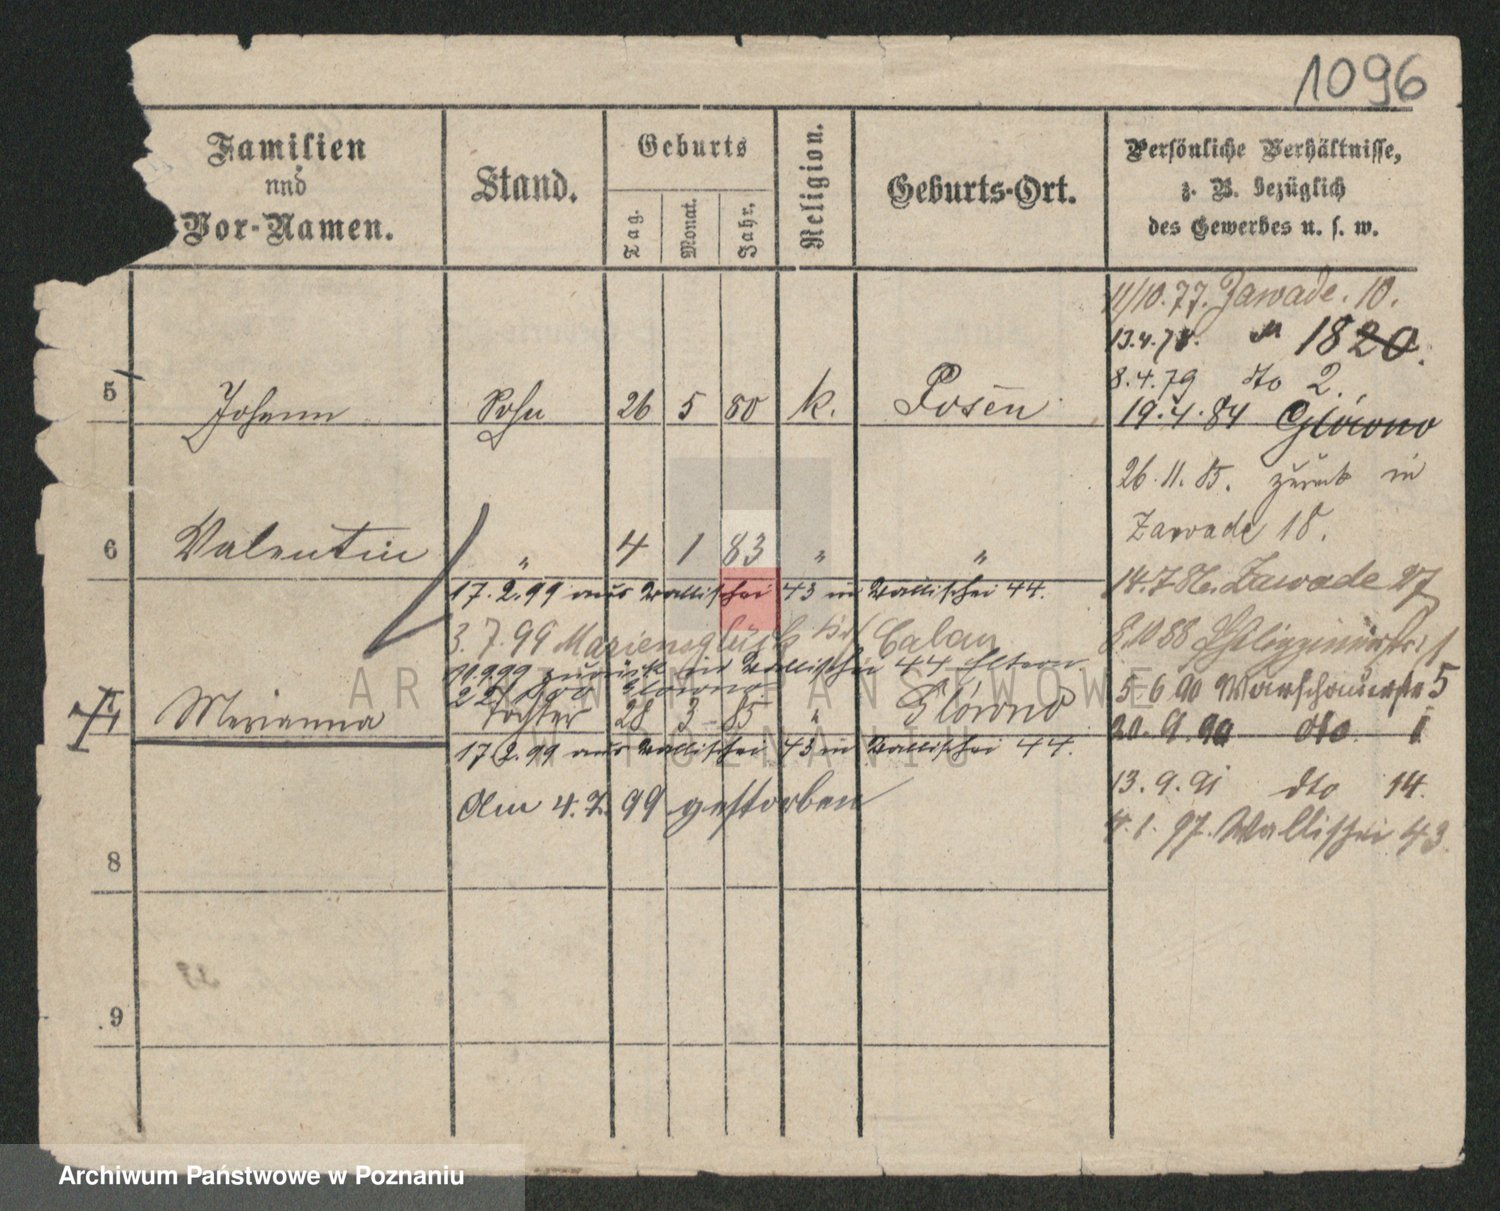 1096
Familien
und
Vor-Namen.
Stand.
Geburts
Tag.
Monat.
Jahr.
Religion.
Geburts-Ort.
Persönliche Verhältnisse,
z. B. bezüglich
des Gewerbes u. s. w.
11/10.77. Zawade. 10.
13.4.78. " 1820.
8.4.79 dto 2.
5 Johann Sohn 26 5 80 k. Posen
19.4.84 Główno
26.11.85. zurück in
Zawade 18.
6 Valentin " 4 1 83 " "
17.2.99 aus Wallischei 43 in Wallischei 44.
14.7.86. Zawade 27
3.7.99 Marienglück Calau
8.10 88
11.9.99 zurück in Wallischei 44 Eltern
Główno
5.6.90 Warschauerstr 5
Marianna Tochter 28 3 85 " Główno
20.9.90 dto 1
17.2.99 aus Wallischei 43 in Wallischei 44.
13.9.91 dto 14.
Am 4.7.99 gestorben
4.1.97. Wallischei 43
8
9
ARCHIWUM PAŃSTWOWE
W POZNANIU
Archiwum Państwowe w Poznaniu